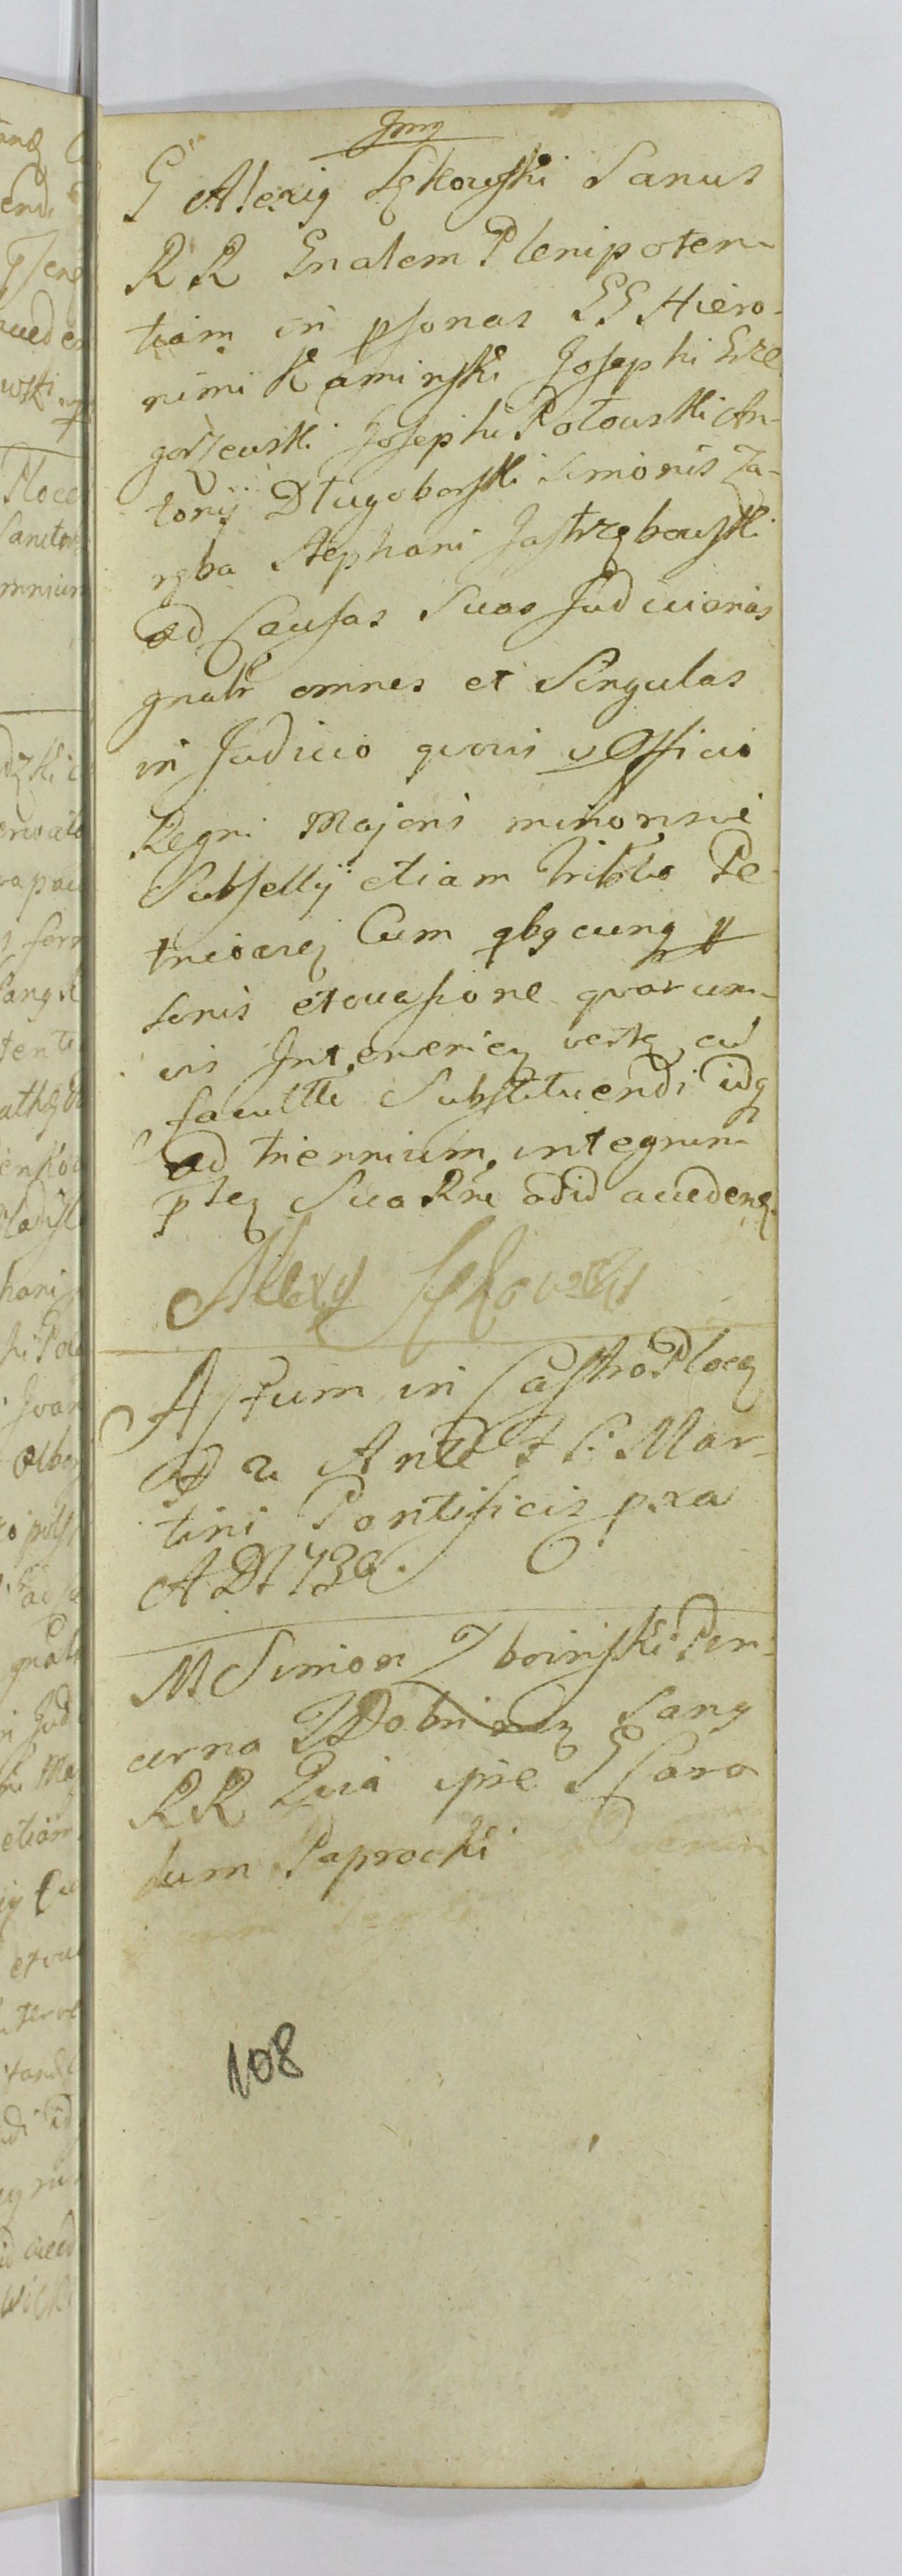 G Alexig Sękowski Sanus
R R Gnalem Plenipoten-
tiam in psonas GG Hiero-
nimi Kaminski Josephi Grze
gorzewski Josephi Potowski An-
tonij Długoborski Simonis Za-
ręba Stephani Jastrzębowski
ad Causas Suas Judiciarias
gnalr omnes et Singulas
in Judicio quovis v Officio
Regni Majoris minorisve
Subsellij etiam Triblo Pe
tricov Cum qbq cunq p
sonis et ocasione quacun-
vis Interveneg vertę cu
facultte Substituendi idq
ad triennium integrum
pteg Sua Rne adid accedenę
Alexy Sękowski
Actum in Castro Plocę
F 2 Ante F S: Martini
tini Pontificis pxa
A D 1730.
M Simon Zboinski Pin-
cerna T Dobrinę Sang
R R Quia ipse G Caro
lum Paprocki
108